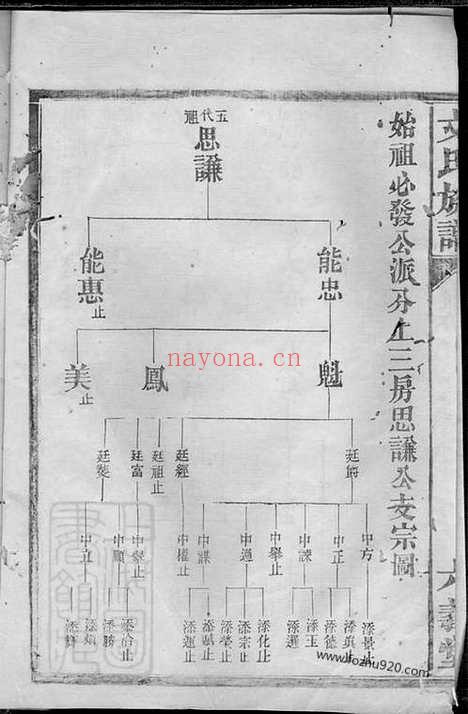 氏族譜
始祖必發公派分上三房思謙公支宗圖
五代祖
思謙
能忠
能惠止
魁
鳳
美止
廷爵
廷經
廷祖止
廷富
廷獎
中方
中正
中諫
中舉止
中適
中謀
中權止
中舉止
中順
中立
添景止
添真
添德
添玉
添選
添化止
添宗止
添榮止
添賦止
添進止
添治止
添勝
添煩
nayona.cn
www.fozhu920.com